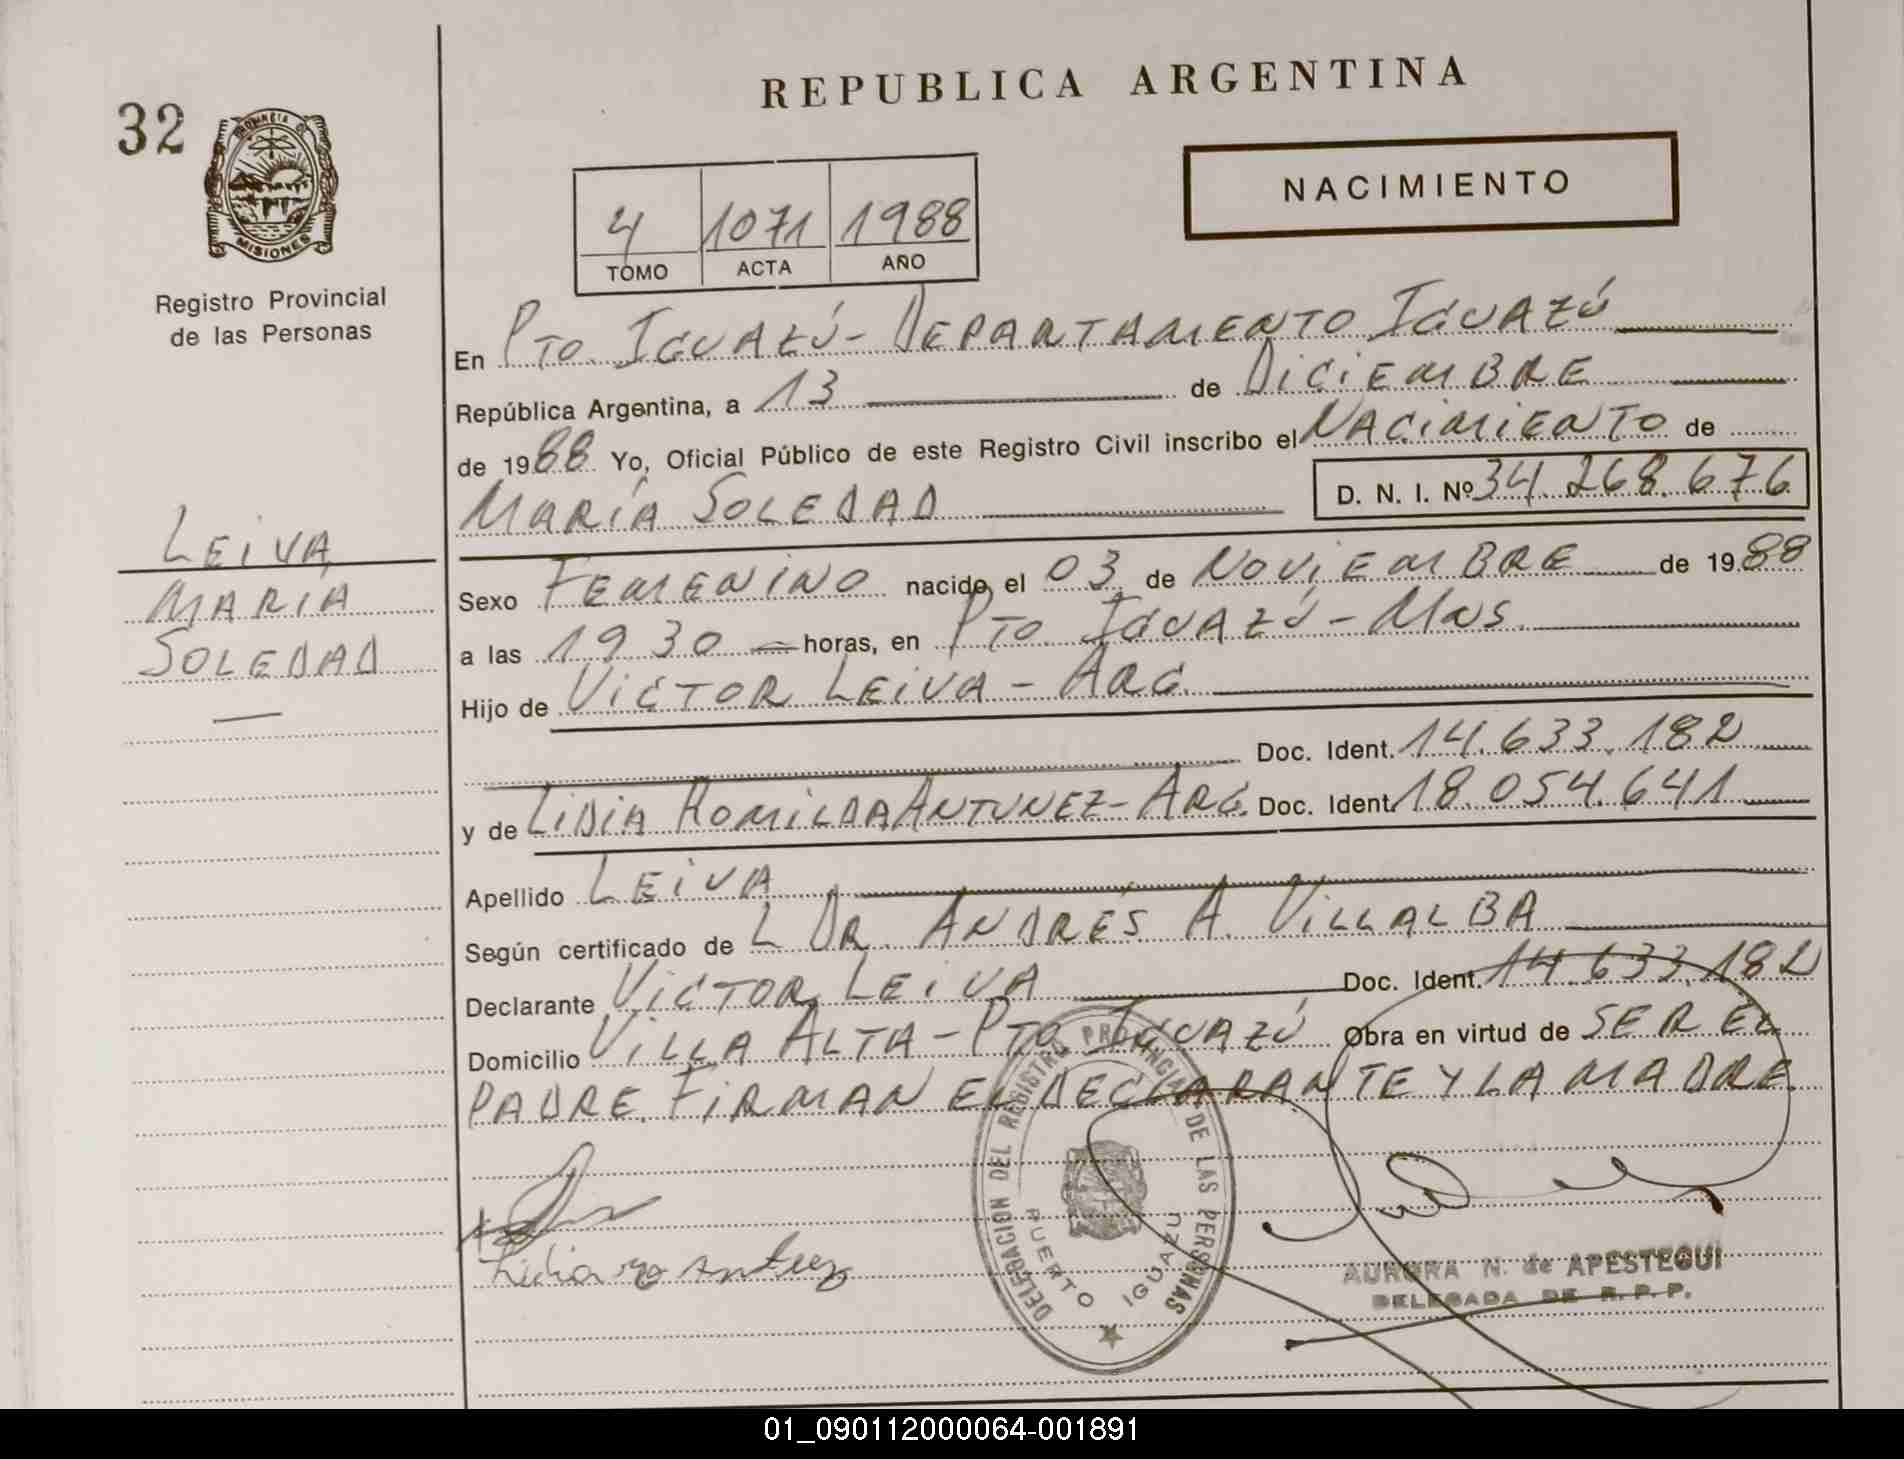 REPUBLICA ARGENTINA
32
PROVINCIA DE
MISIONES
Registro Provincial
de las Personas
NACIMIENTO
4 1071 1988
TOMO ACTA AÑO
En PTO. IGUAZÚ - DEPARTAMENTO IGUAZÚ
República Argentina, a 13 de DICIEMBRE
de 1988 Yo, Oficial Público de este Registro Civil inscribo el NACIMIENTO de
MARÍA SOLEDAD D. N. I. Nº 34.268.676
LEIVA,
MARIA
SOLEDAD
Sexo FEMENINO nacido el 03 de NOVIEMBRE de 1988
a las 19 30 horas, en PTO. IGUAZÚ - MNS.
Hijo de VICTOR LEIVA - ARG.
Doc. Ident. 14.633.182
y de LIDIA ROMILDA ANTUNEZ - ARG. Doc. Ident. 18.054.641
Apellido LEIVA
Según certificado de L DR. ANDRÉS A. VILLALBA
Declarante VICTOR LEIVA Doc. Ident. 14.633.182
Domicilio VILLA ALTA - PTO. IGUAZÚ Obra en virtud de SER EL
PADRE. FIRMAN EL DECLARANTE Y LA MADRE
DELEGACION DEL REGISTRO PROVINCIAL DE LAS PERSONAS
PUERTO IGUAZU
AURORA N. de APESTEGUI
DELEGADA DE R.P.P.
01_090112000064-001891